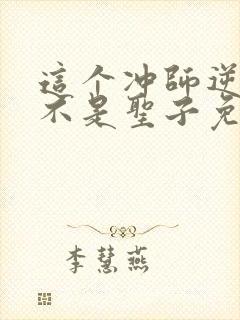 這个冲師逆
不是聖子免
李慧燕